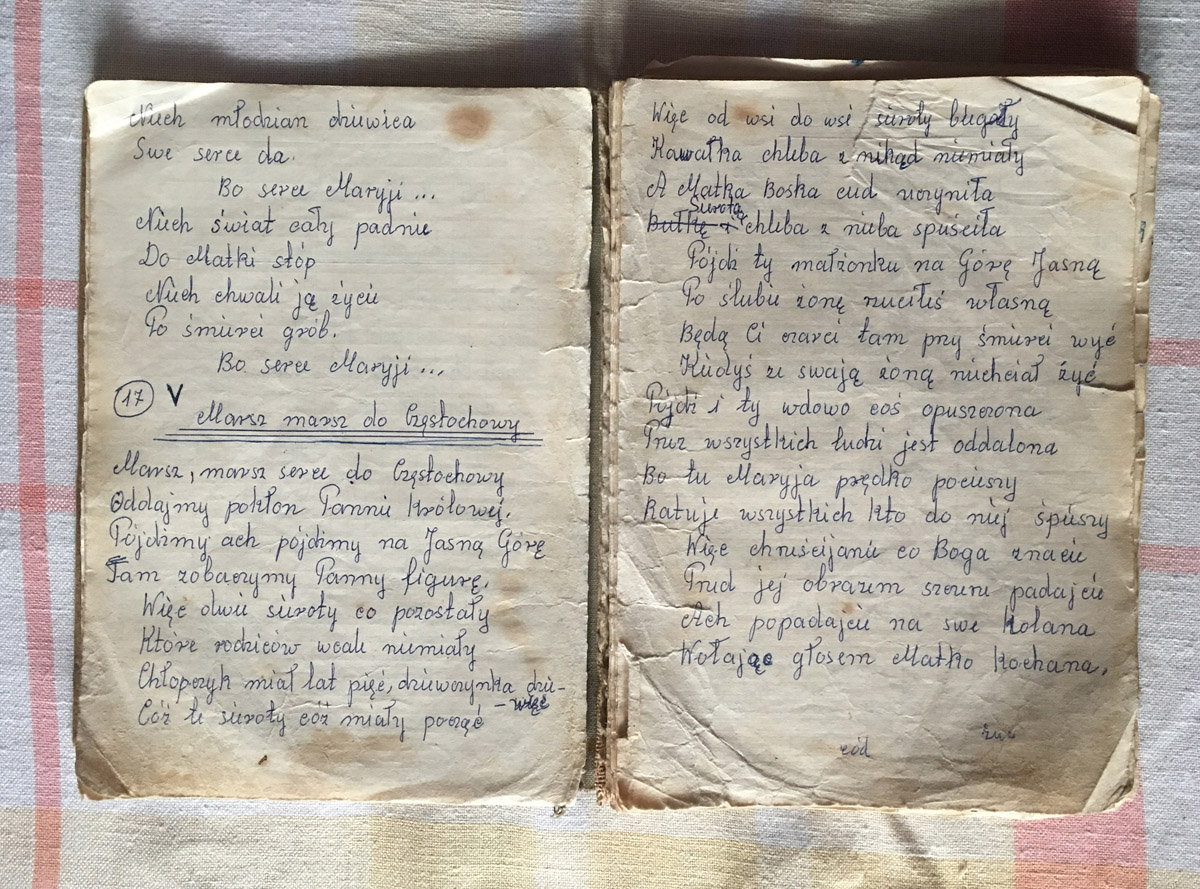 Niech młodzian dziewica
Swe serce da.
Bo serce Maryji ...
Niech świat cały padnie
Do Matki stóp
Niech chwali ją życie
Po śmierci grób.
Bo serce Maryji ...
17 V
Marsz marsz do Częstochowy
Marsz, marsz serce do Częstochowy
Oddajmy pokłon Pannie Królowej.
Pójdźmy ach pójdźmy na Jasną Górę
Tam zobaczymy Panny figurę.
Więc dwie sieroty co pozostały
Które rodziców wcale niemiały
Chłopczyk miał lat pięć, dziewczynka dzie-
- więć
Cóż te sieroty cóż miały począć
Więc od wsi do wsi sieroty biegały
Kawałka chleba z nikąd niemiały
A Matka Boska cud uczyniła
Sierotą
Bułkę i chleba z nieba spuściła
Pójdź ty małżonku na Górę Jasną
Po ślubie żonę rzuciłeś własną
Będą Ci czarci tam przy śmierci wyć
Kiedyś ze swają żoną niechciał żyć
Pójdź i ty wdowo coś opuszczona
Przez wszystkich ludzi jest oddalona
Bo tu Maryja prędko pocieszy
Ratuje wszystkich kto do niej śpieszy
Więc chrześcijanie co Boga znacie
Przed jej obrazem szczerze padajcie
Ach popadajcie na swe kolana
Wołając głosem Matko kochana.